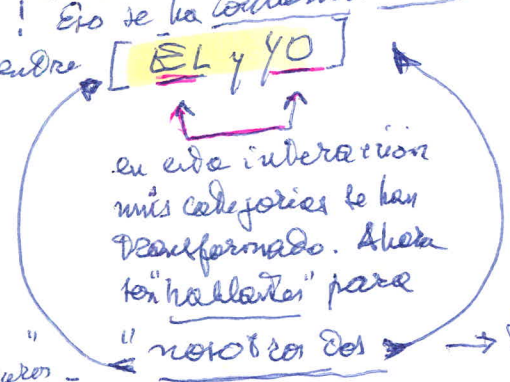 ! Eso se ha
entre
[ EL y YO ]
en esta interacción
mis categorías se han
transformado. Ahora
son "hablantes" para
"nosotros dos → "